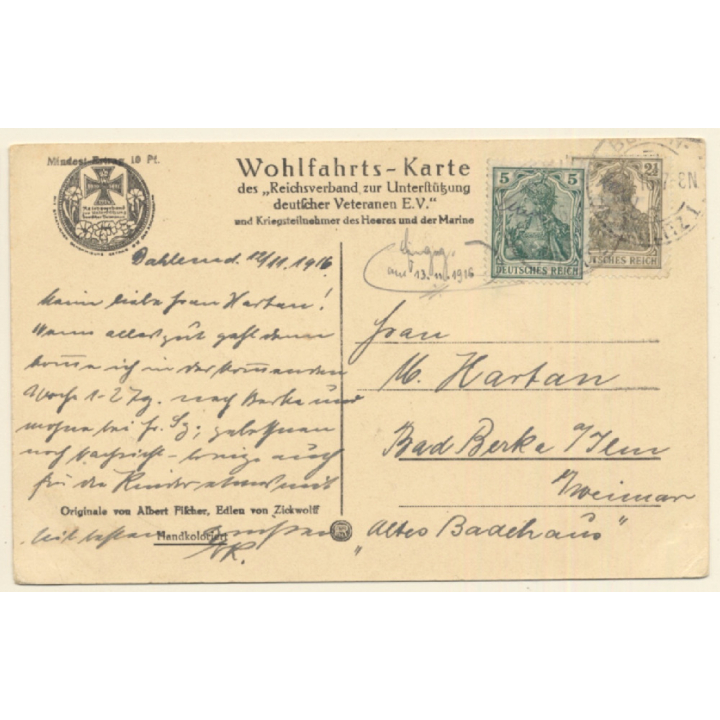 Mindest-Ertrag 10 Pf.
Wohlfahrts-Karte
des „Reichsverband zur Unterstützung
deutscher Veteranen E.V.“
und Kriegsteilnehmer des Heeres und der Marine
5 5
DEUTSCHES REICH
2½
DEUTSCHES REICH
Eingeg.
am 13. 11. 1916
Dahlem d. 12/11. 1916
Meine liebe Frau Hartan!
Wenn alles gut geht dann
komme ich in der kommenden
Woche 1-2 Tg. nach Berka und
wohne bei Fr. Sg; gebe Ihnen
noch Nachricht - bringe auch
für die Kinder etwas mit
Originale von Albert Fischer, Edlen von Zickwolff
Mit besten Grüßen
Handkoloriert
Frau
M. Hartan
Bad Berka a/Ilm
b/Weimar
„Altes Badehaus“